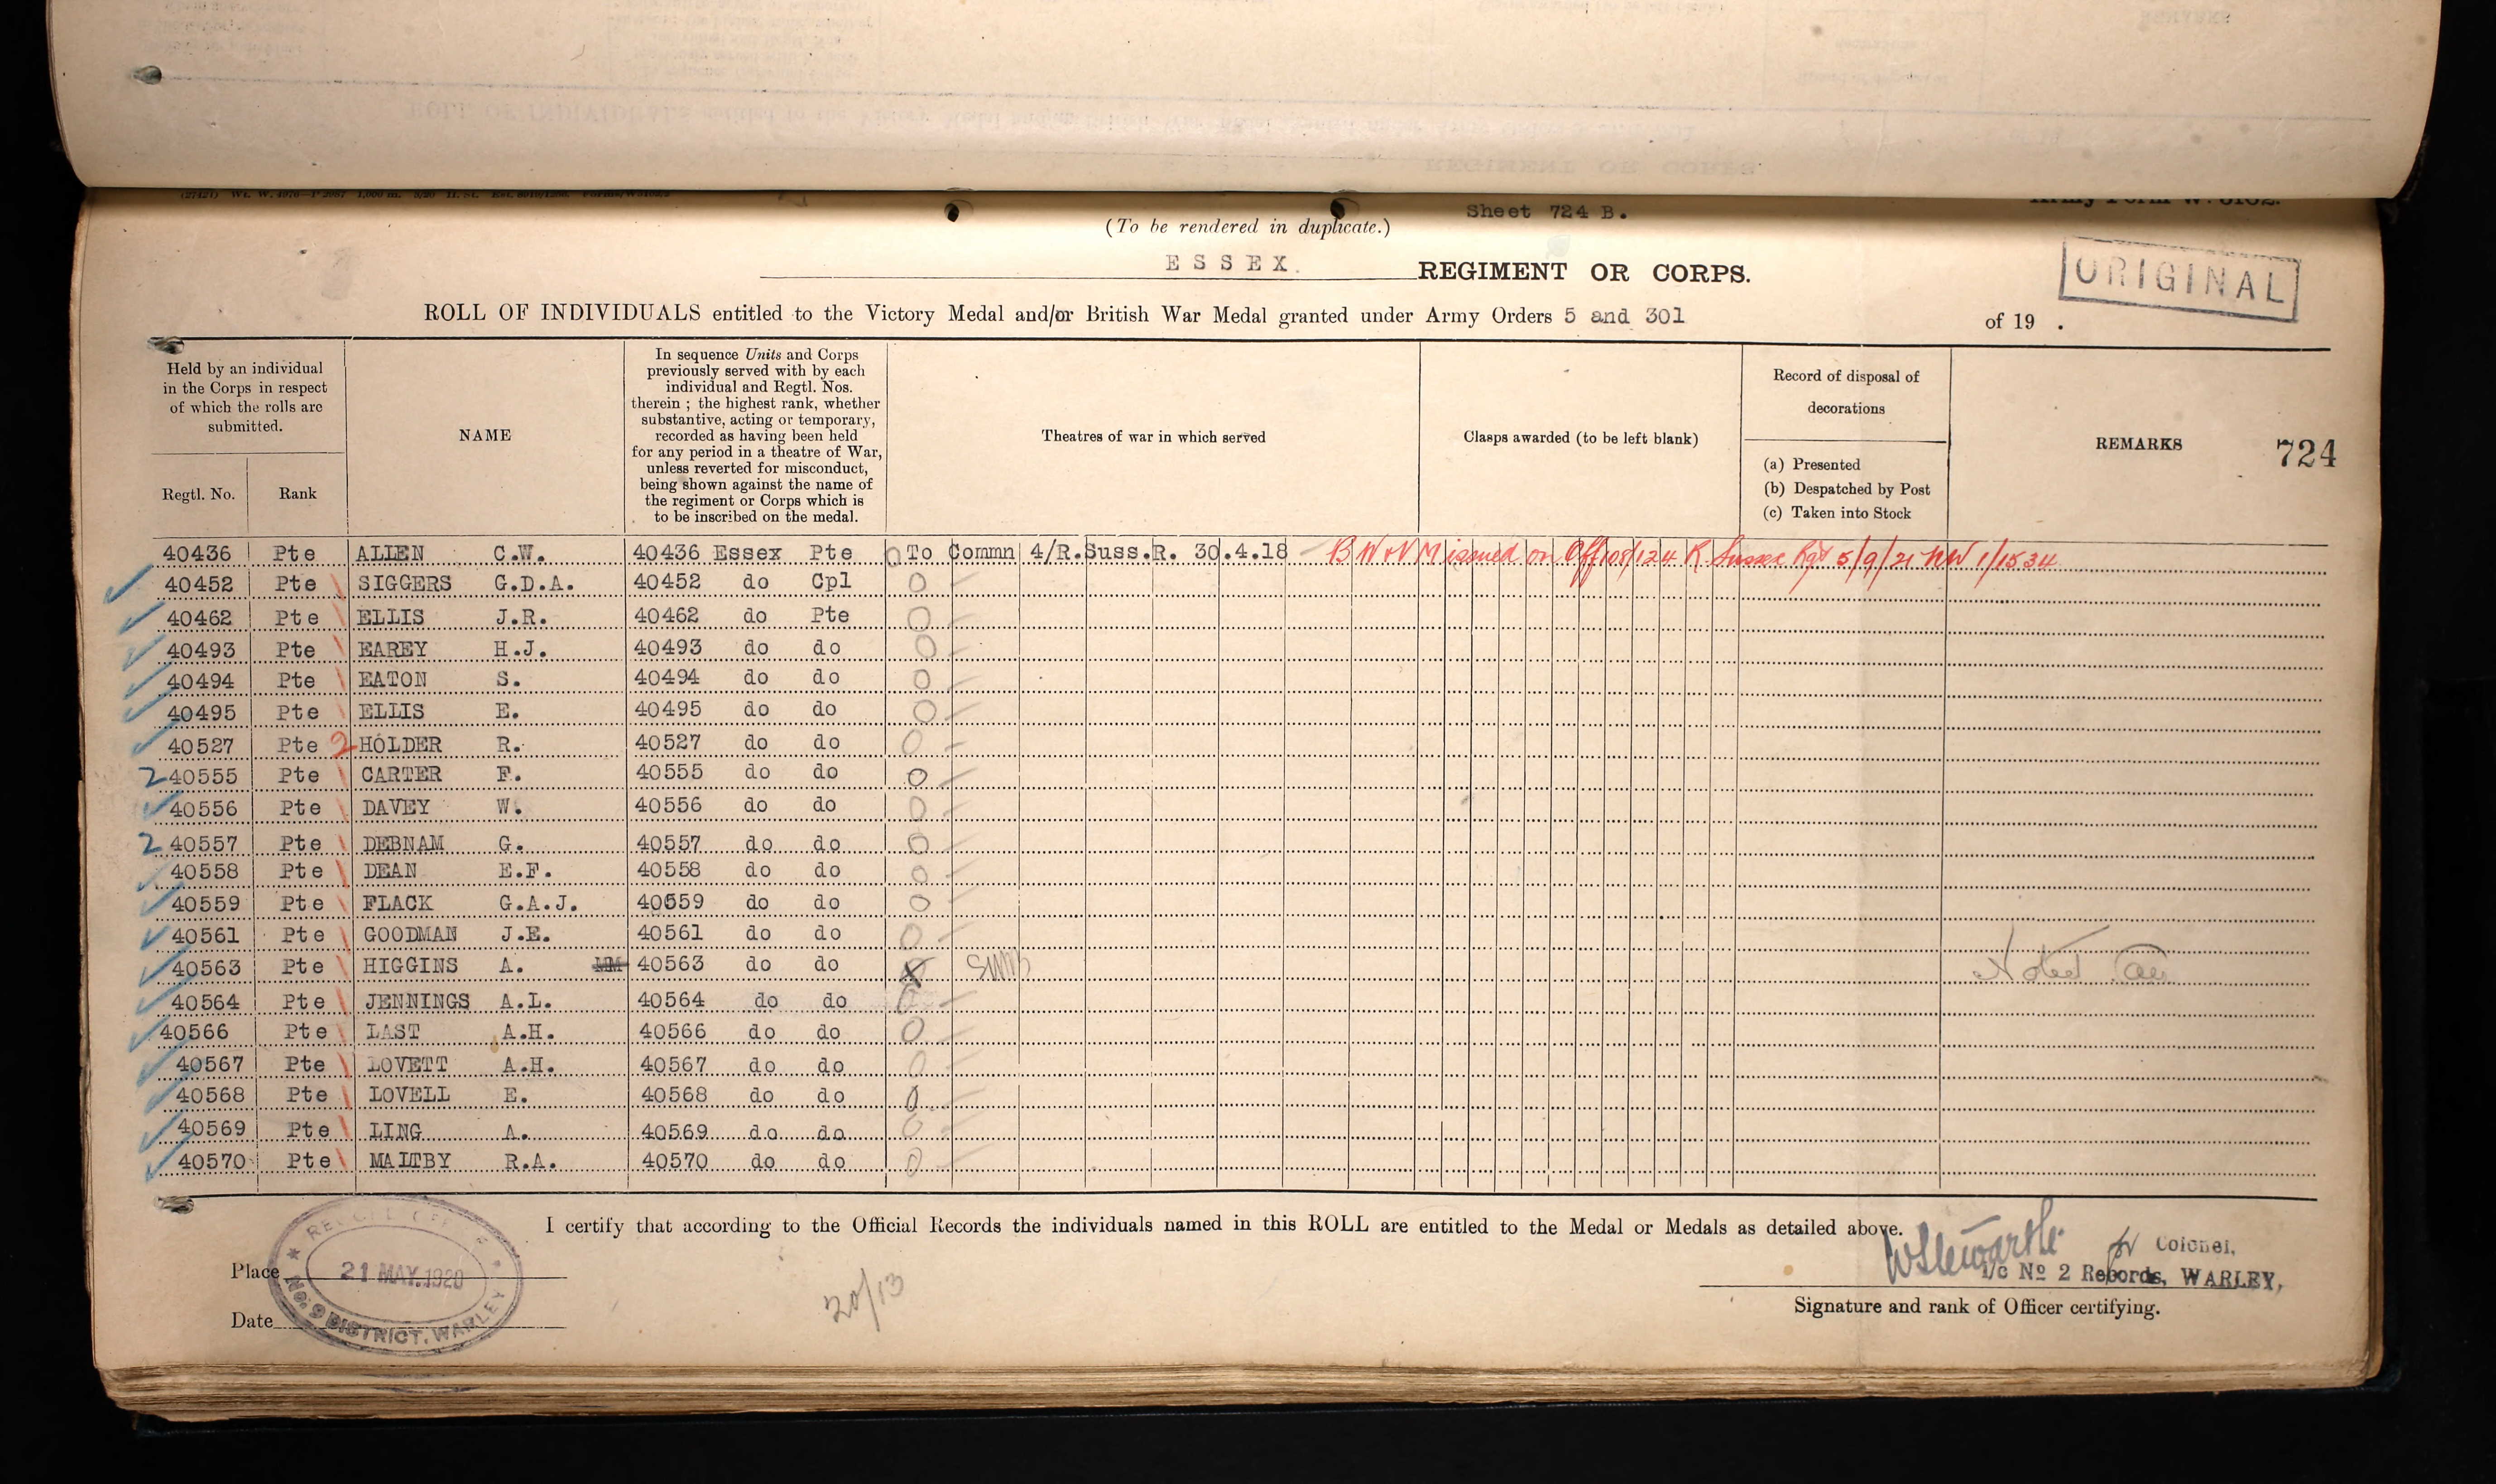 Sheet 724 B.
(To be rendered in duplicate.)
ESSEX REGIMENT OR CORPS.
ORIGINAL
ROLL OF INDIVIDUALS entitled to the Victory Medal and/or British War Medal granted under Army Orders 5 and 301 of 19 .
Held by an individual
in the Corps in respect
of which the rolls are
submitted.
Regtl. No. Rank
NAME
In sequence Units and Corps
previously served with by each
individual and Regtl. Nos.
therein ; the highest rank, whether
substantive, acting or temporary,
recorded as having been held
for any period in a theatre of War,
unless reverted for misconduct,
being shown against the name of
the regiment or Corps which is
to be inscribed on the medal.
Theatres of war in which served
Clasps awarded (to be left blank)
Record of disposal of
decorations
(a) Presented
(b) Despatched by Post
(c) Taken into Stock
REMARKS
724
40436 Pte ALLEN C.W. 40436 Essex Pte To Commn 4/R.Suss.R. 30.4.18 B W & V M issued on Off/108/124 R Sussex Rgt 5/9/21 NW 1/1534
40452 Pte SIGGERS G.D.A. 40452 do Cpl
40462 Pte ELLIS J.R. 40462 do Pte
40493 Pte EAREY H.J. 40493 do do
40494 Pte EATON S. 40494 do do
40495 Pte ELLIS E. 40495 do do
40527 Pte 2 HOLDER R. 40527 do do
2 40555 Pte CARTER F. 40555 do do
40556 Pte DAVEY W. 40556 do do
2 40557 Pte DEBNAM G. 40557 do do
40558 Pte DEAN E.F. 40558 do do
40559 Pte FLACK G.A.J. 40559 do do
40561 Pte GOODMAN J.E. 40561 do do
40563 Pte HIGGINS A. MM 40563 do do Noted
40564 Pte JENNINGS A.L. 40564 do do
40566 Pte LAST A.H. 40566 do do
40567 Pte LOVETT A.H. 40567 do do
40568 Pte LOVELL E. 40568 do do
40569 Pte LING A. 40569 do do
40570 Pte MALTBY R.A. 40570 do do
I certify that according to the Official Records the individuals named in this ROLL are entitled to the Medal or Medals as detailed above.
for Colonel,
i/c No 2 Records, WARLEY,
Place
21 MAY.1920
No. 9 DISTRICT. WARLEY
Date
20/13
Signature and rank of Officer certifying.